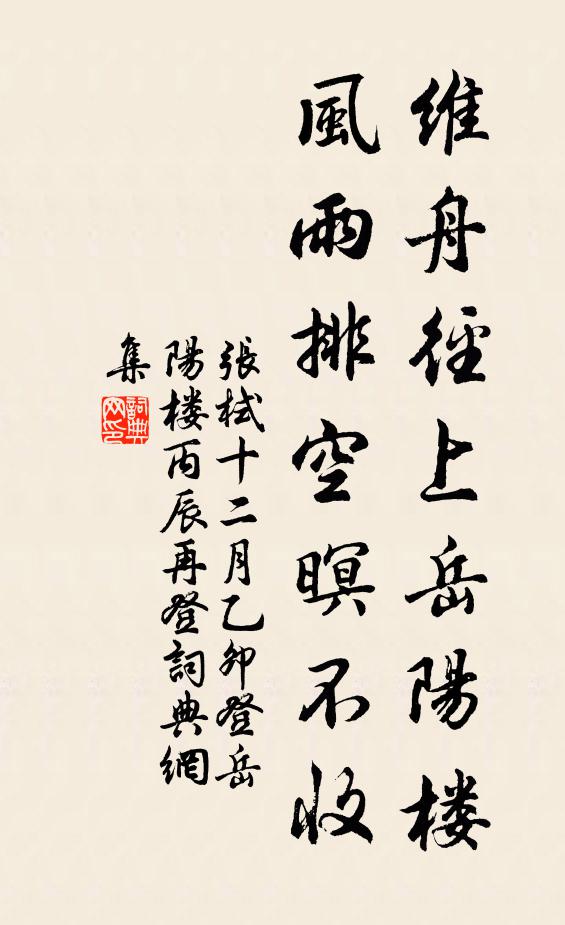 維舟徑上岳陽楼
風雨排空暝不收
張栻十二月乙卯登岳
陽楼丙辰再登詞典網
集
詞典网印